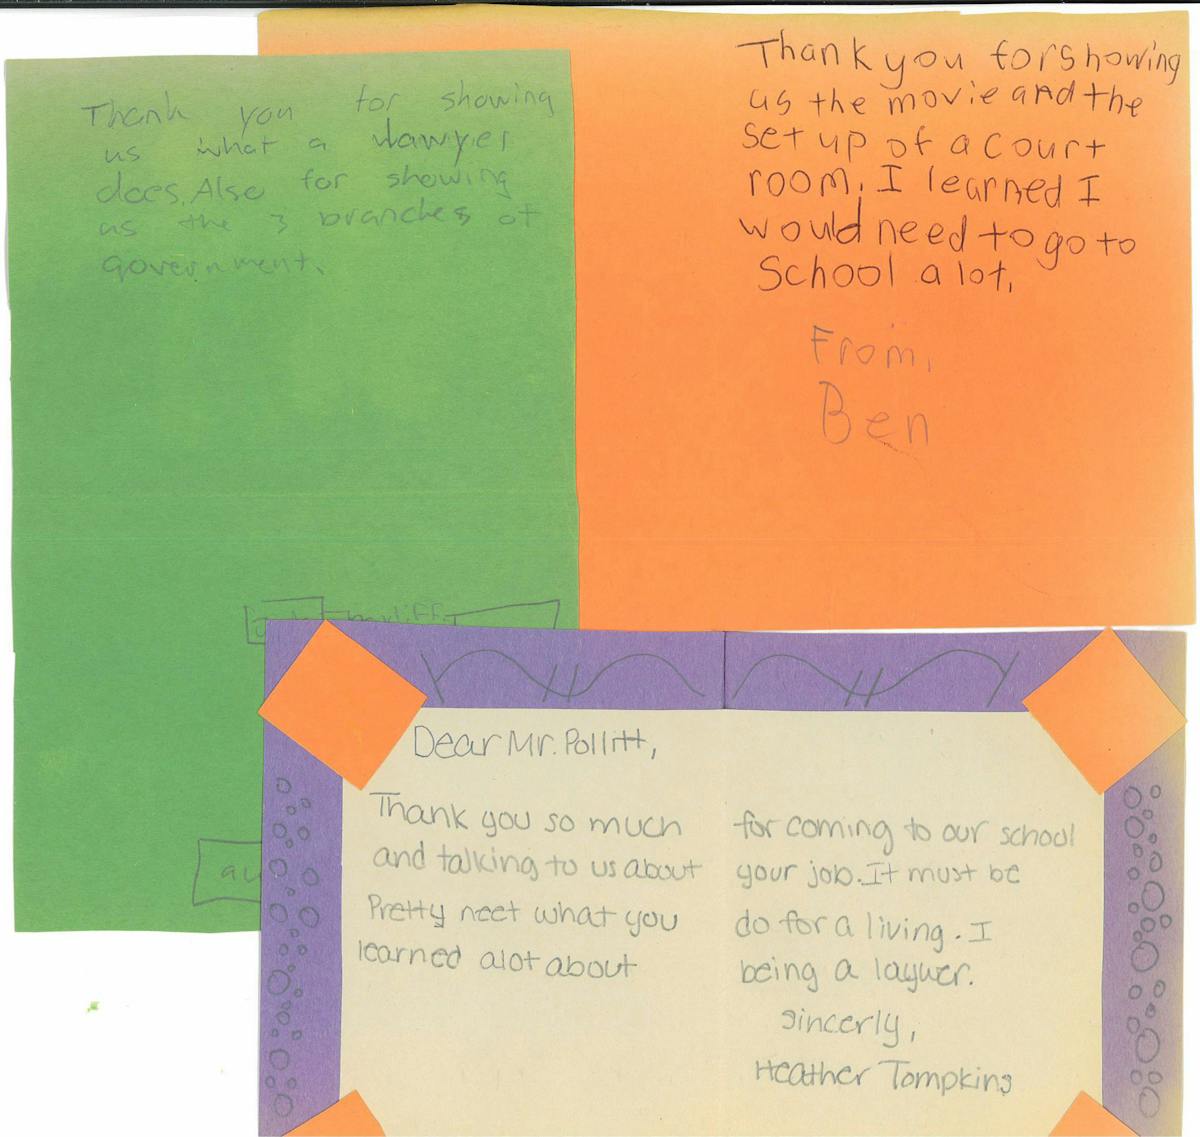 Thank you for showing
us what a lawyer
does. Also for showing
us the 3 branches of
government.
Thank you for showing
us the movie and the
set up of a court
room. I learned I
would need to go to
School a lot.
From,
Ben
Dear Mr. Pollitt,
Thank you so much for coming to our school
and talking to us about your job. It must be
Pretty neet what you do for a living. I
learned alot about being a laywer.
sincerly,
Heather Tompkins